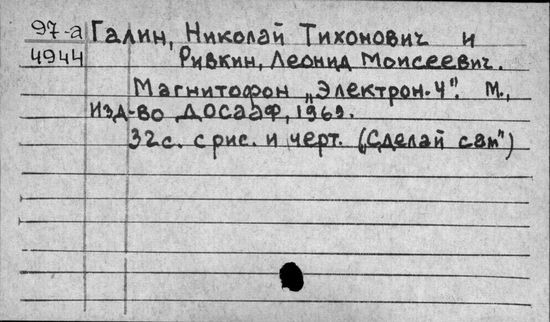 97-а
4944
Галин, Николай Тихонович и
Ривкин, Леонид Моисеевич.
Магнитофон „Электрон-4". М.,
изд-во ДОСААФ, 1969.
32с. с рис. и черт. („Сделай сам")